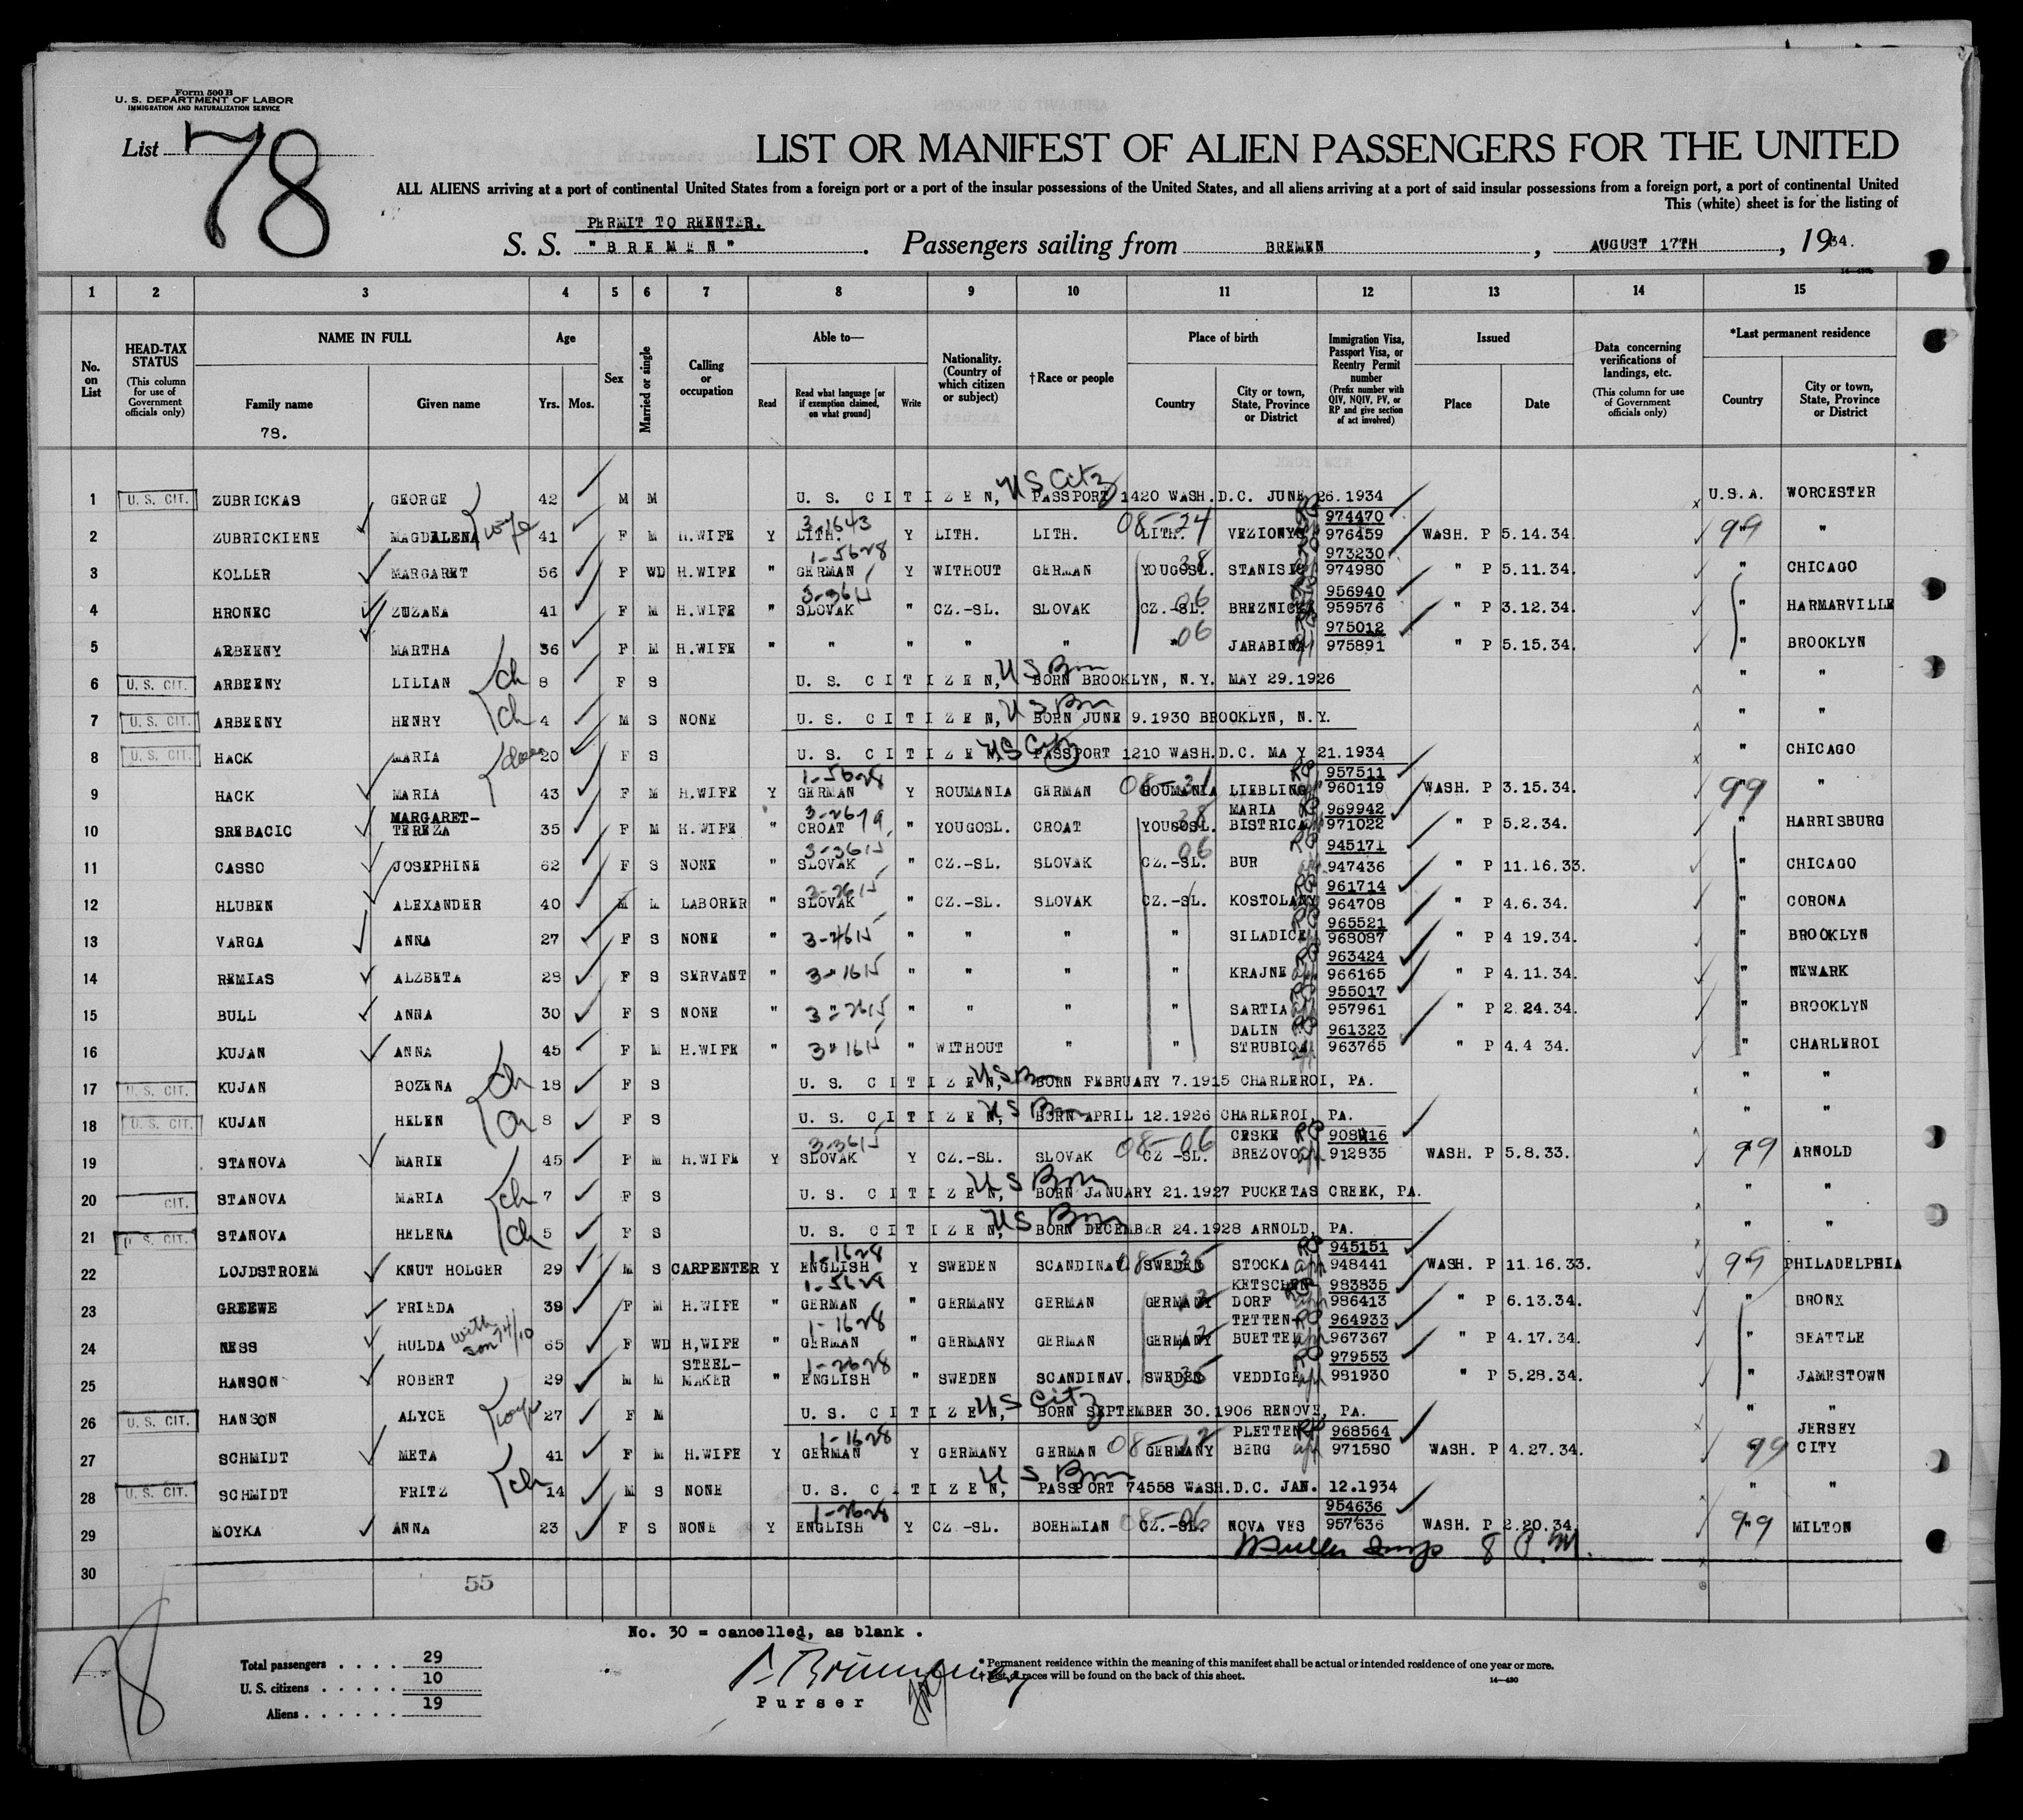 Form 500 B
U. S. DEPARTMENT OF LABOR
IMMIGRATION AND NATURALIZATION SERVICE
List 78
LIST OR MANIFEST OF ALIEN PASSENGERS FOR THE UNITED
ALL ALIENS arriving at a port of continental United States from a foreign port or a port of the insular possessions of the United States, and all aliens arriving at a port of said insular possessions from a foreign port, a port of continental United
This (white) sheet is for the listing of
PERMIT TO REENTER.
S. S. "BREMEN". Passengers sailing from BREMEN, AUGUST 17TH, 1934.
1 2 3 4 5 6 7 8 9 10 11 12 13 14 15
No. on List
HEAD-TAX STATUS (This column for use of Government officials only)
NAME IN FULL Family name Given name
78.
Age Yrs. Mos.
Sex
Married or single
Calling or occupation
Able to— Read Read what language [or if exemption claimed, on what ground] Write
Nationality. (Country of which citizen or subject)
†Race or people
Place of birth Country City or town, State, Province or District
Immigration Visa, Passport Visa, or Reentry Permit number (Prefix number with QIV, NQIV, PV, or RP and give section of act involved)
Issued Place Date
Data concerning verifications of landings, etc. (This column for use of Government officials only)
*Last permanent residence Country City or town, State, Province or District
1 U. S. CIT. ZUBRICKAS GEORGE 42 M M U. S. CITIZEN, US Citz PASSPORT 1420 WASH.D.C. JUNE 26.1934 U.S.A. WORCESTER
2 ZUBRICKIENE MAGDALENA wife 41 F M H.WIFE Y 3-1643 LITH. Y LITH. LITH. 08-24 LITH. VEZIONYS RP 974470 976459 WASH. P 5.14.34. 99 " "
3 KOLLER MARGARET 56 F WD H.WIFE " 1-5628 GERMAN Y WITHOUT GERMAN YOUGOSL. 38 STANISIC RP 973230 974980 " P 5.11.34. " CHICAGO
4 HRONEC ZUZANA 41 F M H.WIFE " 3-3615 SLOVAK " CZ.-SL. SLOVAK CZ.-SL. 06 BREZNICKA 956940 959576 " P 3.12.34. " HARMARVILLE
5 ARBEENY MARTHA 36 F M H.WIFE " " " " " " 06 JARABINA 975012 975891 " P 5.15.34. " BROOKLYN
6 U. S. CIT. ARBEENY LILIAN ch 8 F S U. S. CITIZEN, US Born BORN BROOKLYN, N.Y. MAY 29.1926 " "
7 U. S. CIT. ARBEENY HENRY ch 4 M S NONE U. S. CITIZEN, US Born BORN JUNE 9.1930 BROOKLYN, N.Y. " "
8 U. S. CIT. HACK MARIA 20 F S U. S. CITIZEN, US Citz PASSPORT 1210 WASH.D.C. MAY 21.1934 " CHICAGO
9 HACK MARIA 43 F M H.WIFE Y 1-5628 GERMAN Y ROUMANIA GERMAN 08-31 ROUMANIA LIEBLING RP 957511 960119 WASH. P 3.15.34. 99 "
10 SREBACIC MARGARET-TEREZA 35 F M H.WIFE " 3-2679 CROAT " YOUGOSL. CROAT YOUGOSL. 38 MARIA BISTRICA RP 969942 971022 " P 5.2.34. " HARRISBURG
11 CASSO JOSEPHINE 62 F S NONE " 3-3615 SLOVAK " CZ.-SL. SLOVAK CZ.-SL. 06 BUR RP 945171 947436 " P 11.16.33. " CHICAGO
12 HLUBEN ALEXANDER 40 M M LABORER " 3-2615 SLOVAK " CZ.-SL. SLOVAK CZ.-SL. KOSTOLANY RP 961714 964708 " P 4.6.34. " CORONA
13 VARGA ANNA 27 F S NONE " 3-2615 " " " " SILADICE RP 965521 968087 " P 4 19.34. " BROOKLYN
14 REMIAS ALZBETA 28 F S SERVANT " 3-1615 " " " " KRAJNE RP 963424 966165 " P 4.11.34. " NEWARK
15 BULL ANNA 30 F S NONE " 3-2615 " " " " SARTIA RP 955017 957961 " P 2.24.34. " BROOKLYN
16 KUJAN ANNA 45 F M H.WIFE " 3-1615 " WITHOUT " " DALIN STRUBIC RP 961323 963765 " P 4.4 34. " CHARLEROI
17 U. S. CIT. KUJAN BOZENA ch 18 F S U. S. CITIZEN, US Born BORN FEBRUARY 7.1915 CHARLEROI, PA. " "
18 U. S. CIT. KUJAN HELEN ch 8 F S U. S. CITIZEN, US Born BORN APRIL 12.1926 CHARLEROI, PA. " "
19 STANOVA MARIE 45 F M H.WIFE Y 3-3615 SLOVAK Y CZ.-SL. SLOVAK 08-06 CZ -SL. CESKE BREZOVO RP 908416 912835 WASH. P 5.8.33. 99 ARNOLD
20 CIT. STANOVA MARIA ch 7 F S U. S. CITIZEN, US Born BORN JANUARY 21.1927 PUCKETAS CREEK, PA. " "
21 U. S. CIT. STANOVA HELENA ch 5 F S U. S. CITIZEN, US Born BORN DECEMBER 24.1928 ARNOLD, PA. " "
22 LOJDSTROEM KNUT HOLGER 29 M S CARPENTER Y 1-1628 ENGLISH Y SWEDEN SCANDINAV. 08-35 SWEDEN STOCKA RP 945151 948441 WASH. P 11.16.33. 99 PHILADELPHIA
23 GREEWE FRIEDA 39 F M H.WIFE " 1-5628 GERMAN " GERMANY GERMAN GERMANY 12 KETSCHEN DORF 983835 986413 " P 6.13.34. " BRONX
24 NESS HULDA with son 74/10 65 F WD H,WIFE " 1-1628 GERMAN " GERMANY GERMAN GERMANY 12 TETTEN BUETTEL RP 964933 967367 " P 4.17.34. " SEATTLE
25 HANSON ROBERT 29 M M STEEL-MAKER " 1-2628 ENGLISH " SWEDEN SCANDINAV. SWEDEN 35 VEDDIGE RP 979553 981930 " P 5.28.34. " JAMESTOWN
26 U. S. CIT. HANSON ALYCE wife 27 F M U. S. CITIZEN, US Citz BORN SEPTEMBER 30.1906 RENOVE, PA. " "
27 SCHMIDT META 41 F M H.WIFE Y 1-1628 GERMAN Y GERMANY GERMAN 08-12 GERMANY PLETTEN BERG RP 968564 971580 WASH. P 4.27.34. 99 JERSEY CITY
28 U. S. CIT. SCHMIDT FRITZ ch 14 M S NONE U. S. CITIZEN, US Born PASSPORT 74558 WASH.D.C. JAN. 12.1934 " "
29 MOYKA ANNA 23 F S NONE Y 1-2628 ENGLISH Y CZ.-SL. BOEHMIAN 08-06 CZ.-SL. NOVA VES 954636 957636 WASH. P 2.20.34 99 MILTON
Insp 8 P.M.
30
55
No. 30 = cancelled, as blank .
Total passengers . . . . 29
U. S. citizens . . . . . 10
Aliens . . . . . . 19
78
Purser
* Permanent residence within the meaning of this manifest shall be actual or intended residence of one year or more.
† List of races will be found on the back of this sheet.
14—430